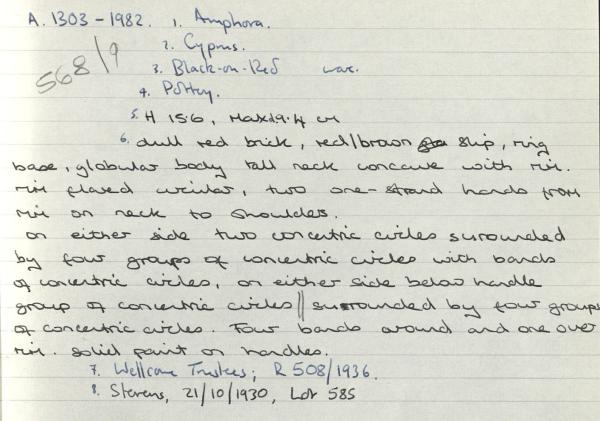 A. 1303 - 1982. 1. Amphora.
568/9
2. Cyprus.
3. Black-on-Red ware.
4. Pottery.
5. H 15.6, Max d 9.4 cm
6. dull red brick, red/brown slip, ring
base, globular body tall neck concave with rim.
rim flared circular, two one-strand hands from
rim on neck to shoulder.
on either side two concentric circles surrounded
by four groups of concentric circles with bands
of concentric circles, on either side below handle
group of concentric circles || surrounded by four groups
of concentric circles. Four bands around and one over
rim. solid paint on handles.
7. Wellcome Trustees; R 508/1936.
8. Stevens, 21/10/1930, Lot 585